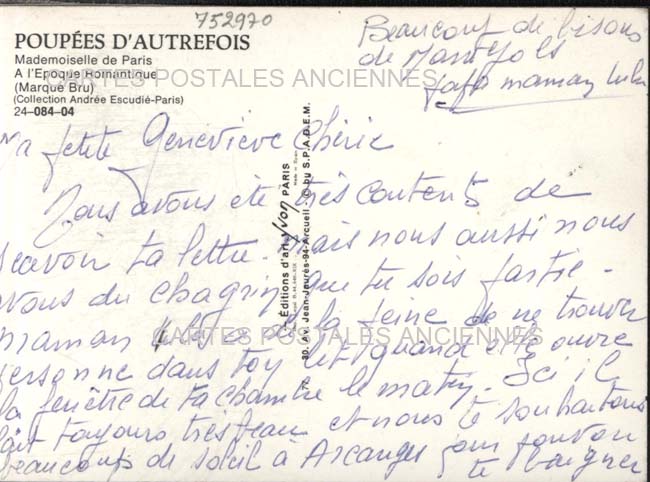 752970
POUPÉES D'AUTREFOIS
Mademoiselle de Paris
A l'Epoque Romantique
(Marque Bru)
(Collection Andrée Escudié-Paris)
24-084-04
Beaucoup de bisous
de
papa maman lulu
CARTES POSTALES ANCIENNES
Ma petite Geneviève Chérie
Nous avons été très contents de
recevoir ta lettre. Mais nous aussi nous
avons du chagrin que tu sois partie.
maman a la peine de ne trouver
personne dans ton lit quand elle ouvre
la fenêtre de ta chambre le matin. Ici il
fait toujours très beau et nous te souhaitons
beaucoup de soleil à Arcanges pour pouvoir
te baigner
CARTES POSTALES ANCIENNES
Éditions d'art Yvon PARIS
30, Av. Jean-Jaurès-94-Arcueil © by S.P.A.D.E.M.